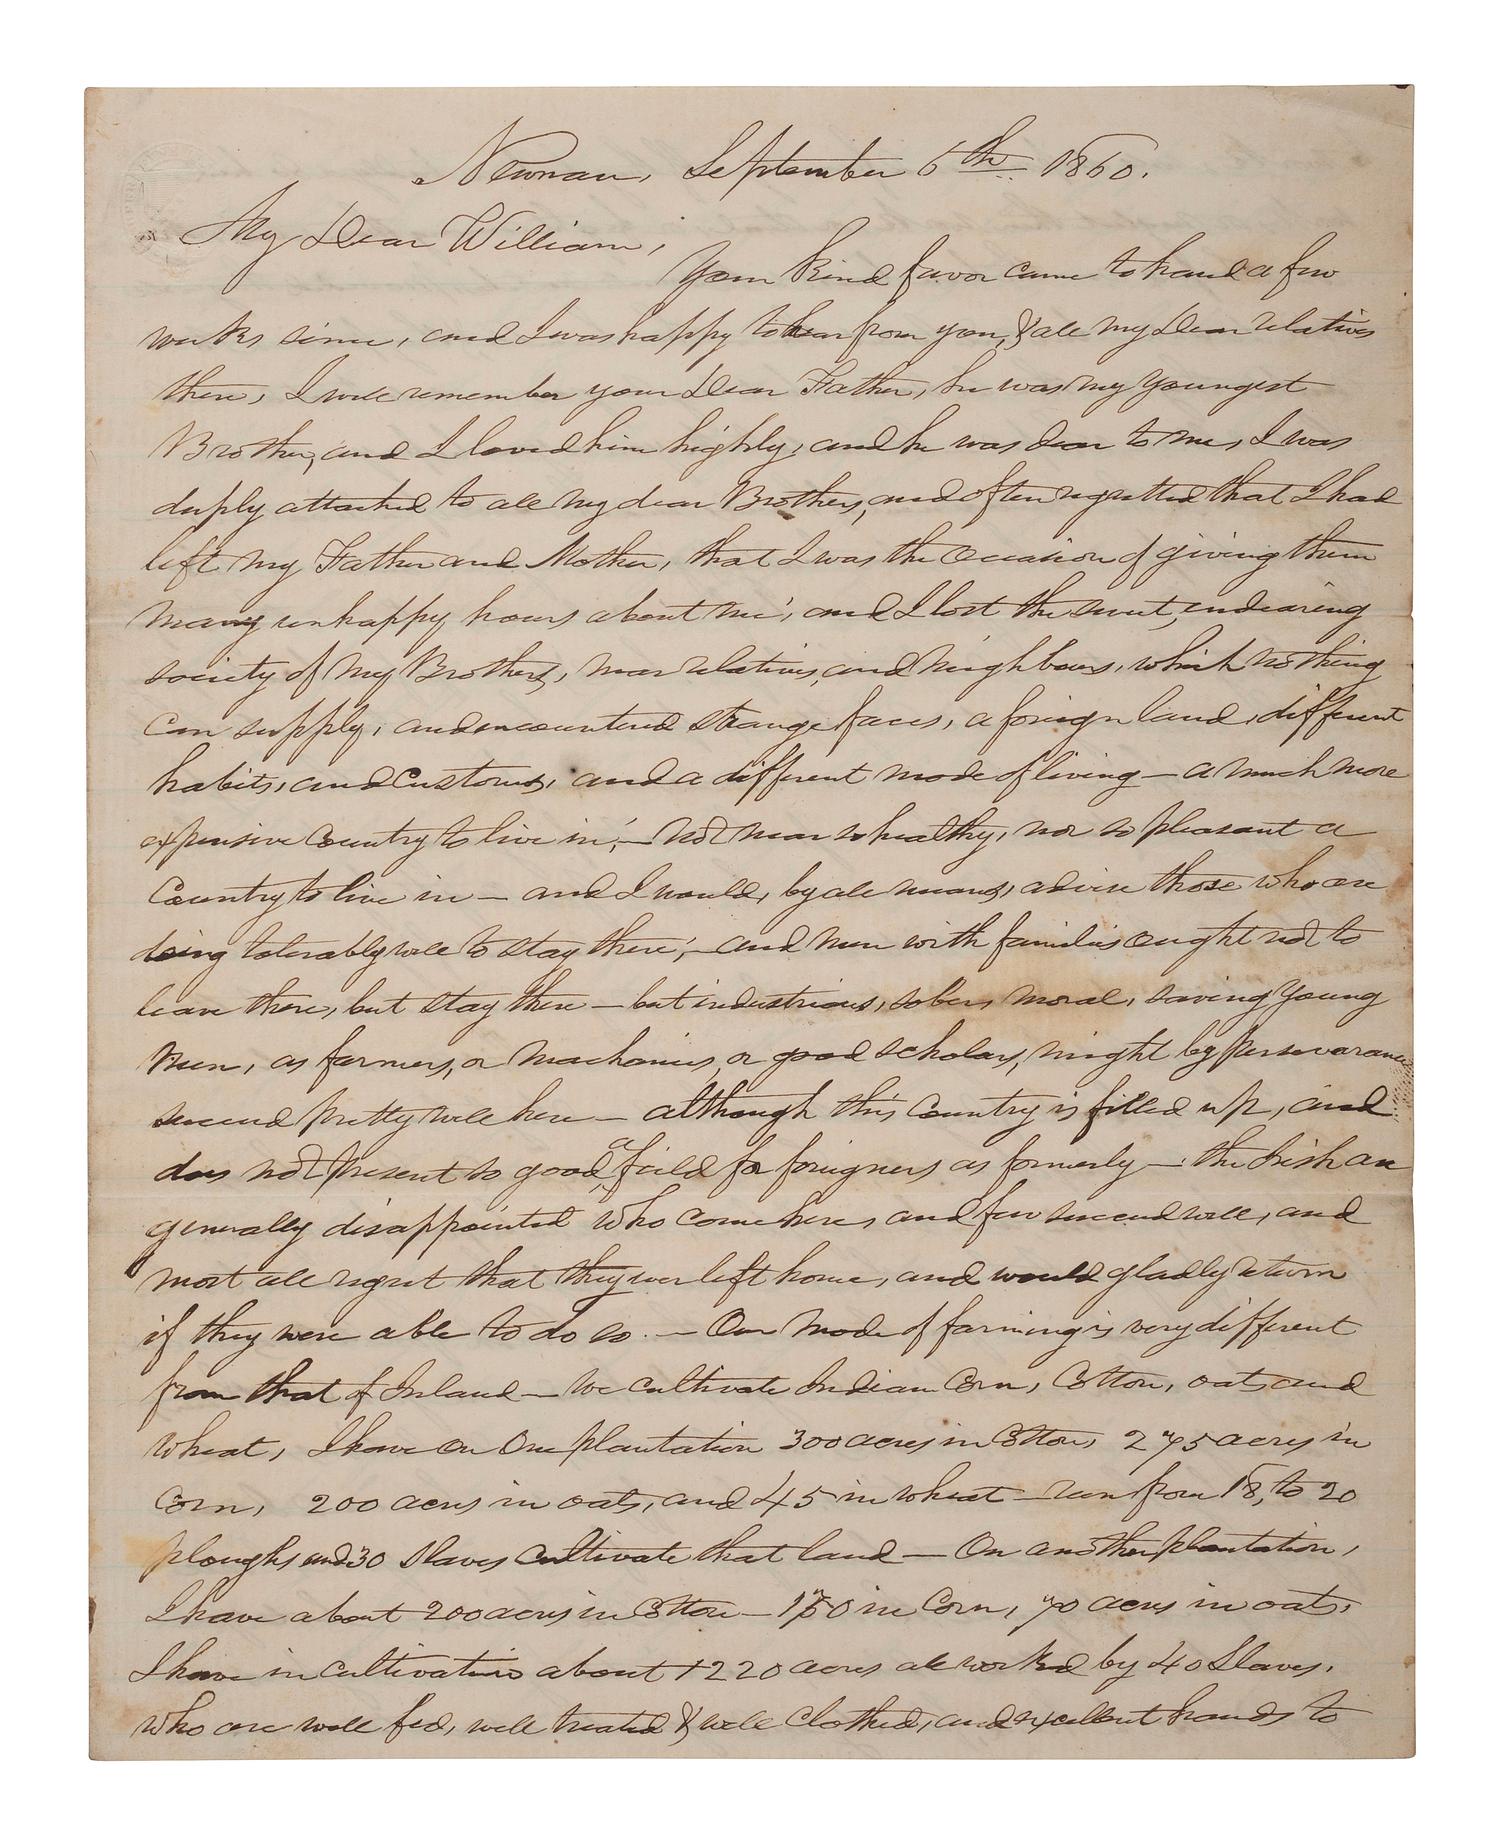 Newnan, September 6th 1860.
My Dear William,
Your kind favor came to hand a few
weeks since, and I was happy to hear from you, & all my Dear relatives
there, I well remember your Dear Father, he was my youngest
Brother, and I loved him highly, and he was dear to me, I was
deeply attached to all my dear Brothers, and often regretted that I had
left my Father and Mother, that I was the occasion of giving them
many unhappy hours about me, and I lost the sweet, endearing
society of my Brothers, near relatives, and neighbours, which nothing
can supply, and encountered strange faces, a foreign land, different
habits, and customs, and a different mode of living — a much more
expensive Country to live in, — not near so healthy, nor so pleasant a
Country to live in — and I would, by all means, advise those who are
doing tolerably well to stay there; — and men with families ought not to
leave there, but stay there — but industrious, sober, moral, saving young
men, as farmers, or mechanics, or good scholars, might by perseverance
succeed pretty well here — although this Country is filled up, and
does not present so good a field for foreigners as formerly — the Irish are
generally disappointed who come here, and few succeed well, and
most all regret that they ever left home, and would gladly return
if they were able to do so. — Our mode of farming is very different
from that of Ireland — we cultivate Indian Corn, Cotton, oats and
wheat, I have on One plantation 300 acres in Cotton, 275 acres in
Corn, 200 acres in oats, and 45 in wheat — run from 18, to 20
ploughs and 30 Slaves cultivate that land — On another plantation,
I have about 200 acres in Cotton — 150 in Corn, 70 acres in oats,
I have in cultivation about 1220 acres all worked by 40 Slaves,
who are well fed, well treated & well clothed, and excellent hands to